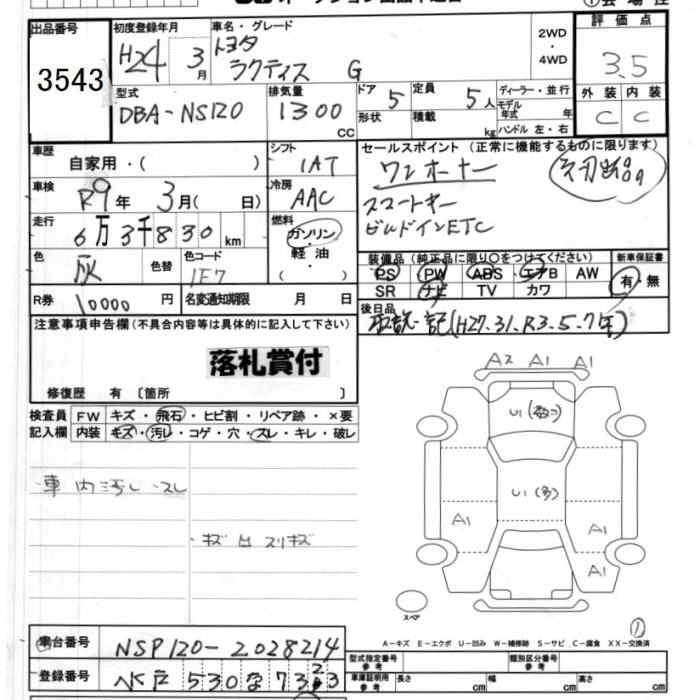 出品番号
3543
初度登録年月
H24 3月
車名・グレード
トヨタ
ラクティス G
2WD
・
4WD
評価点
3.5
型式
DBA-NS120
排気量
1300
CC
ドア 5
形状
定員 5人
積載 kg
ディーラー・並行
モデル年式 年
ハンドル 左・右
外装 内装
C C
車歴
自家用・( )
シフト
1AT
セールスポイント (正常に機能するものに限ります)
ワンオーナー
スマートキー
ビルドインETC
車検
R9年 3月( 日)
冷房
AAC
走行
6万3千830km
燃料
ガソリン・
軽油・
( )
色
灰
色替
色コード
1F7
装備品 (純正品に限り○をつけてください)
PS PW ABS エアB AW
SR ナビ TV カワ
新車保証書
有・無
R券 10000円
名変通期限 月 日
後日品
取説・記(H27.31.R3.5.7年)
注意事項申告欄(不具合内容等は具体的に記入して下さい)
落札賞付
修復歴 有 〔箇所 〕
検査員記入欄
FW キズ・飛石・ヒビ割・リペア跡・×要
内装 キズ・汚レ・コゲ・穴・スレ・キレ・破レ
・車内汚レ・スレ
・キズ凸スリキズ
A2 A1 A1
U1(数コ)
U1(多)
A1
A1
A1
スペア
①
A-キズ E-エクボ U-凹み W-補修跡 S-サビ C-腐食 XX-交換済
車台番号 NSP120-2028214
登録番号 水戸 530 な 73
型式指定番号
参考
類別区分番号
参考
車庫証明用
参考
長さ cm
幅 cm
高さ cm